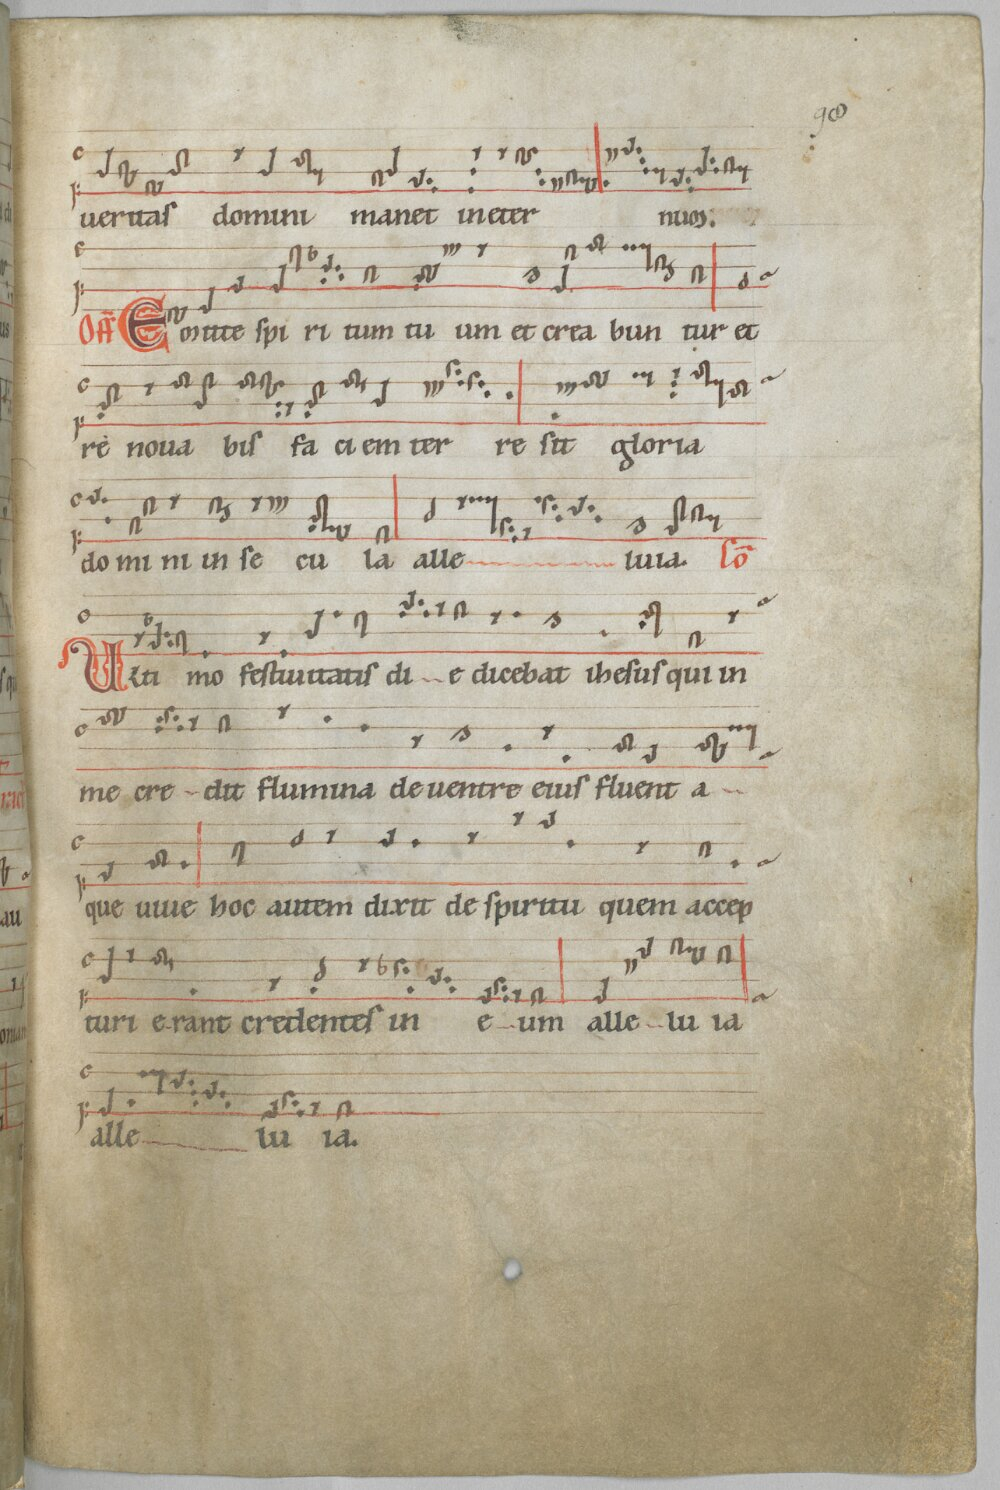 98
ueritas domini manet in eter num.
Off Emitte spi ri tum tu um et crea bun tur et
re noua bis fa ciem ter re sit gloria
do mi ni in se cu la alle luia. Co
Ulti mo festiuitatis di e dicebat ihesus qui in
me cre dit flumina de uentre eius fluent a
que uiue hoc autem dixit de spiritu quem accep
turi erant credentes in e um alle lu ia
alle lu ia.